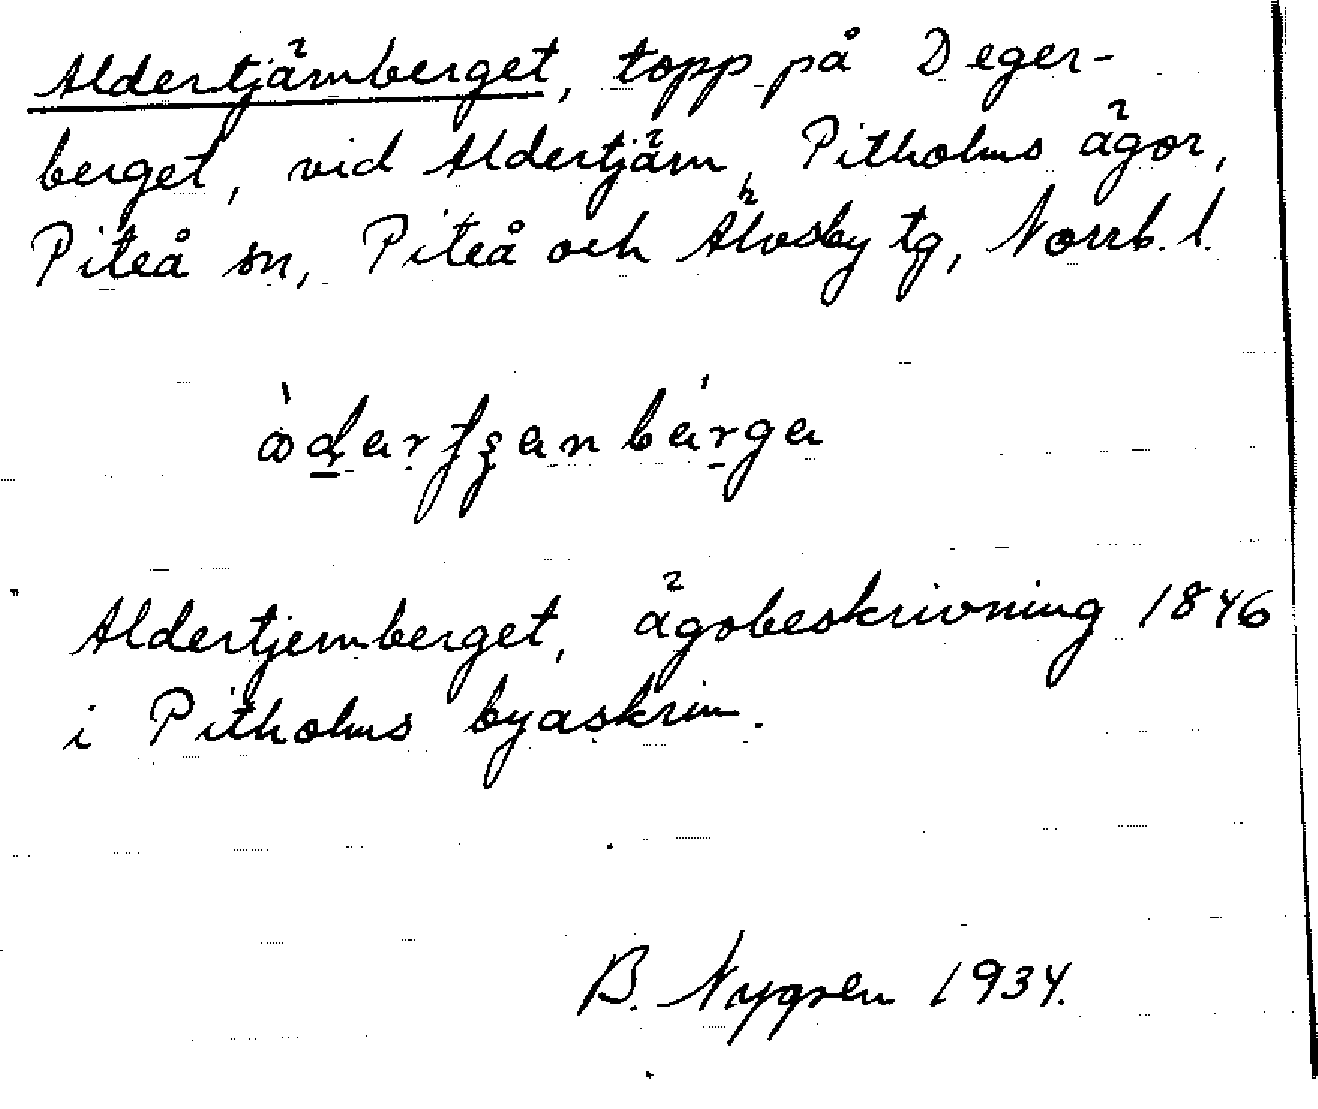 Aldertjärnberget, topp på Deger-
berget, vid Aldertjärn, Pitholms ägor,
Piteå sn, Piteå och Älvsby tg, Norrb. l.
Aldertjernberget, ägobeskrivning 1846
i Pitholms byaskrin.
B. Nygren 1934.